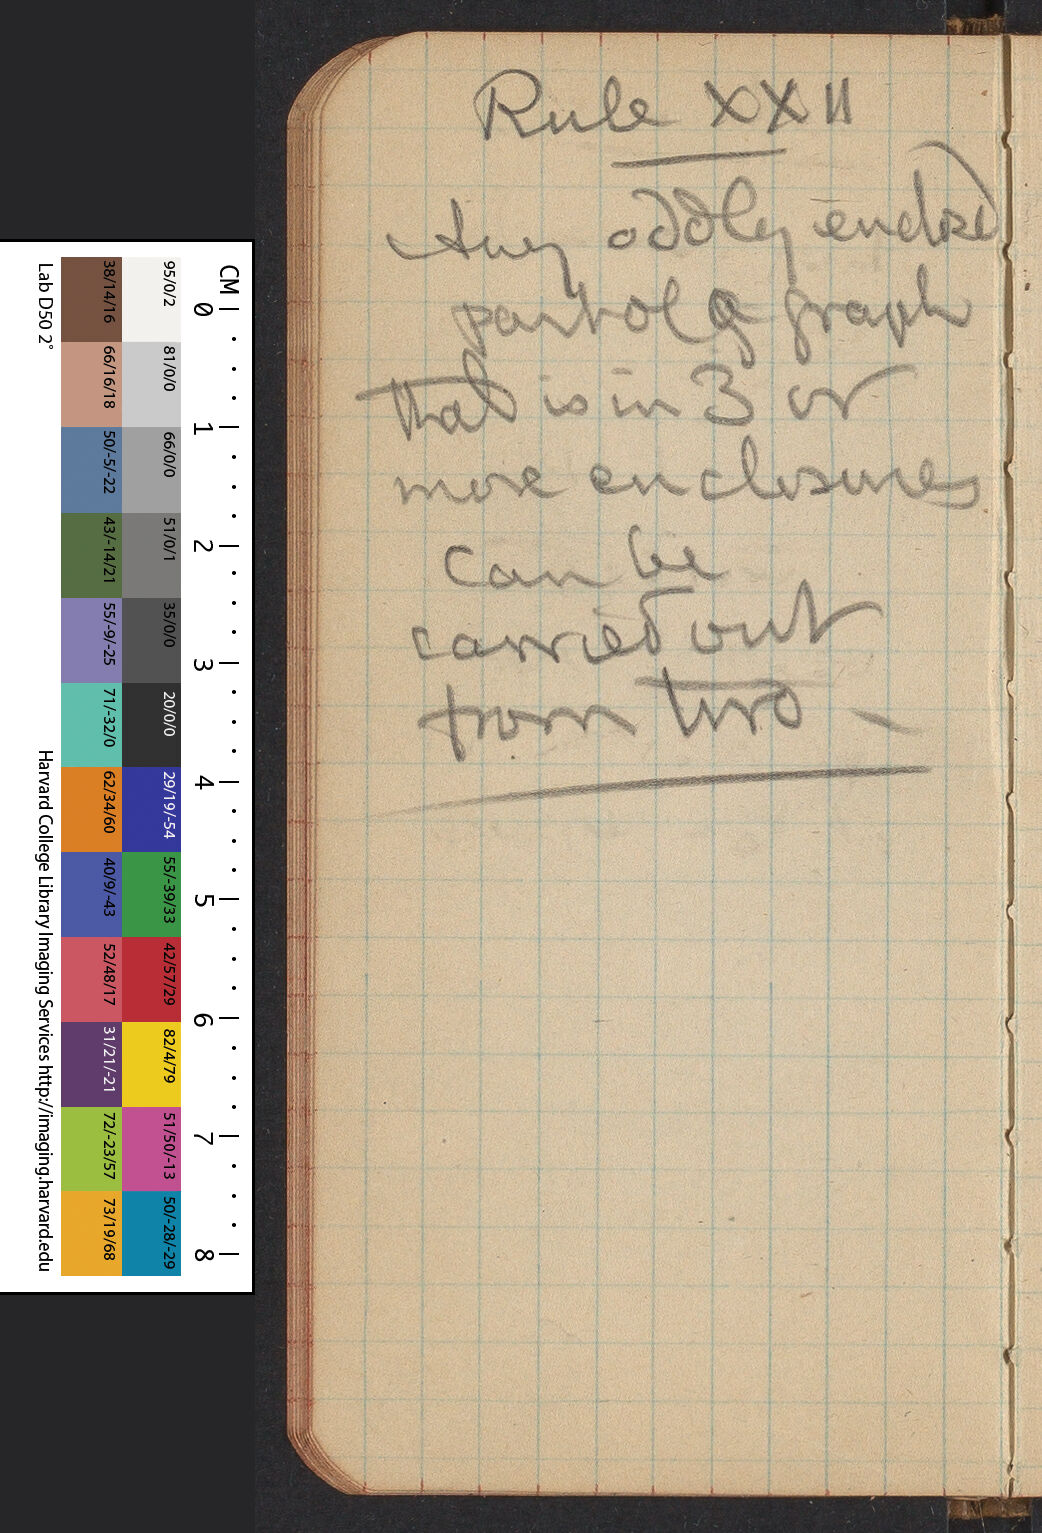 Rule XXII
Any oddly enclsd
part of a graph
that is in 3 or
more enclosures
can be
carried out
from two –
CM 0 1 2 3 4 5 6 7 8
95/0/2 81/0/0 66/0/0 51/0/1 35/0/0 20/0/0 29/19/-54 55/-39/33 42/57/29 82/4/79 51/50/-13 50/-28/-29
38/14/16 66/16/18 50/-5/-22 43/-14/21 55/-9/-25 71/-32/0 62/34/60 40/9/-43 52/48/17 31/21/-21 72/-23/57 73/19/68
Lab D50 2° Harvard College Library Imaging Services http://imaging.harvard.edu